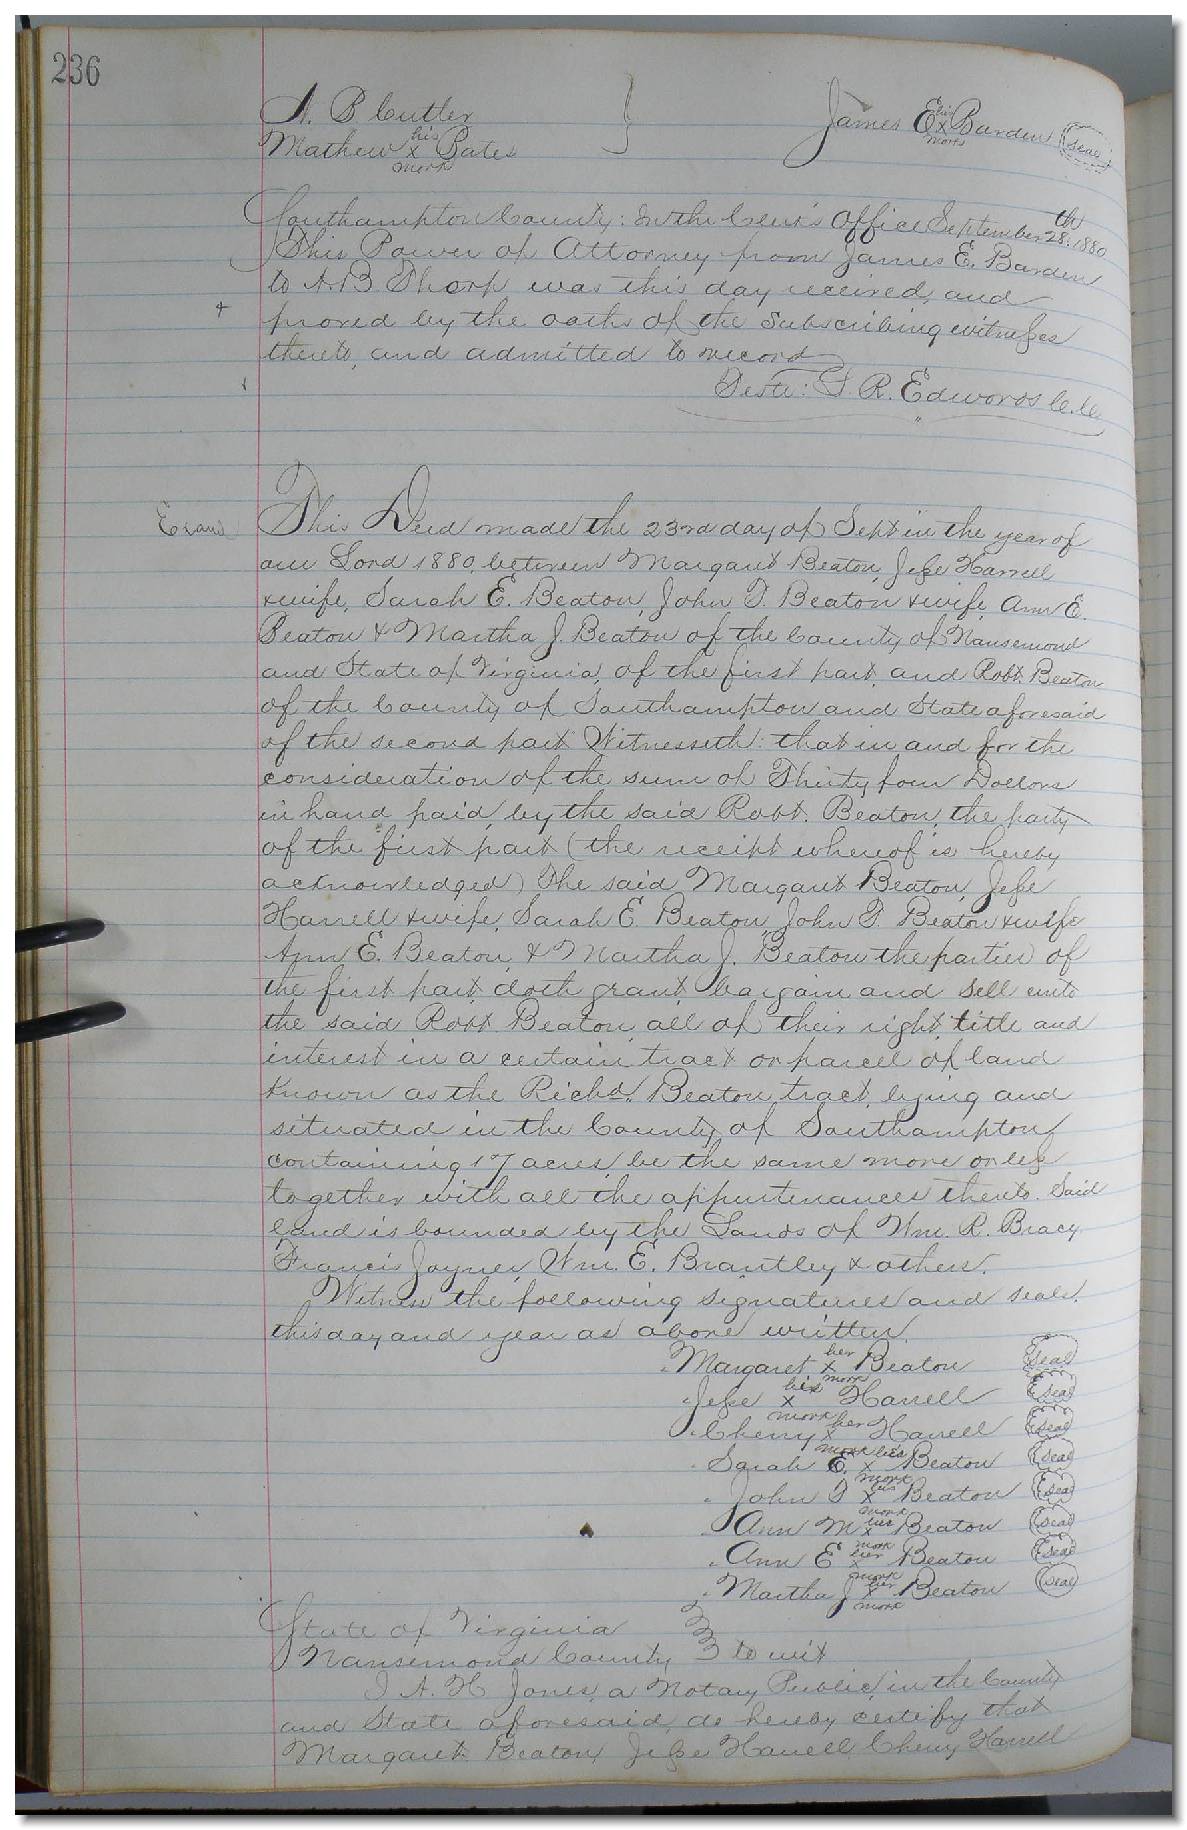 236
A. B Cutler } James E his x mark Barden (seal)
Mathew his x mark Bates
Southampton County: In the Clerk's Office September 28th 1880
This Power of Attorney from James E. Barden
to A. B. Tharp was this day received, and
proved by the oaths of the Subscribing witnesses
thereto, and admitted to record
Teste: L. R. Edwards C.C.
Exam This Deed made the 23rd day of Sept in the year of
our Lord 1880, between Margaret Beaton, Jesse Harrell
& wife, Sarah E. Beaton, John T. Beaton & wife, Ann E.
Beaton & Martha J. Beaton of the County of Nansemond
and State of Virginia, of the first part, and Robt. Beaton
of the County of Southampton and State aforesaid
of the second part Witnesseth: that in and for the
consideration of the sum of Thirty four Dollars
in hand paid, by the said Robt. Beaton, the party
of the first part (the receipt whereof is hereby
acknowledged) The said Margaret Beaton, Jesse
Harrell & wife, Sarah E. Beaton, John T. Beaton & wife
Ann E. Beaton, & Martha J. Beaton the parties of
the first part, doth grant, bargain and Sell unto
the said Robt Beaton, all of their right, title and
interest in a certain tract or parcel of land
Known as the Richd. Beaton tract, lying and
situated in the County of Southampton
containing 17 acres, be the same more or less
together with all the appurtenances thereto. Said
land is bounded by the Lands of Wm. R. Bracy
Francis Joyner, Wm. E. Brantley & others.
Witness the following signatures and seals.
this day and year as above written.
Margaret her x mark Beaton (seal)
Jesse his x mark Harrell (seal)
Cherry her x mark Harrell (seal)
Sarah E. his x mark Beaton (seal)
John T his x mark Beaton (seal)
Ann M her x mark Beaton (seal)
Ann E her x mark Beaton (seal)
Martha J her x mark Beaton (seal)
State of Virginia
Nansemond County } to wit
I A. H Jones, a Notary Public, in the County
and State aforesaid, do hereby certify that
Margaret Beaton, Jesse Harrell, Cherry Harrell